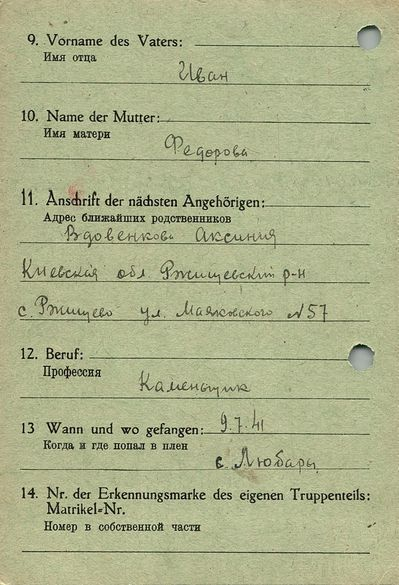 9. Vorname des Vaters:
Имя отца
Иван
10. Name der Mutter:
Имя матери
Федорова
11. Anschrift der nächsten Angehörigen:
Адрес ближайших родственников
Вдовенкова Аксиния
Киевская обл. Ржищевский р-н
с. Ржищево ул. Маяковского N57
12. Beruf:
Профессия
Каменьщик
13 Wann und wo gefangen: 9.7.41
Когда и где попал в плен
с. Любары
14. Nr. der Erkennungsmarke des eigenen Truppenteils:
Matrikel=Nr.
Номер в собственной части